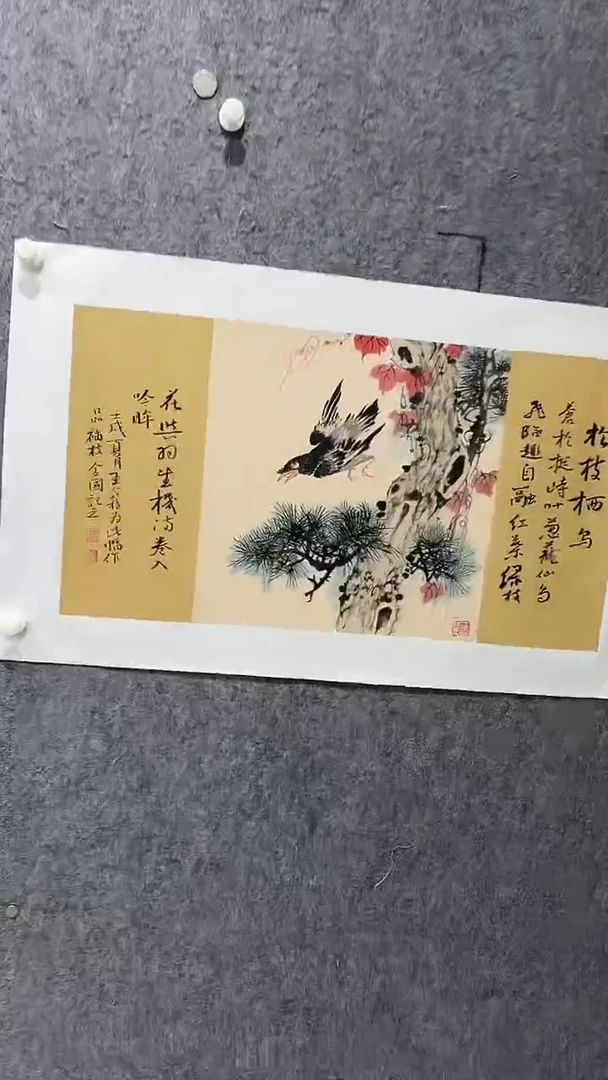 松枝栖鸟
苍松挺峙叶葱茏仙鸟
飞临趣自融红叶缀枝
花与羽生机满卷入
吟眸
壬戌夏月
为此幅作
品补枝金国记之